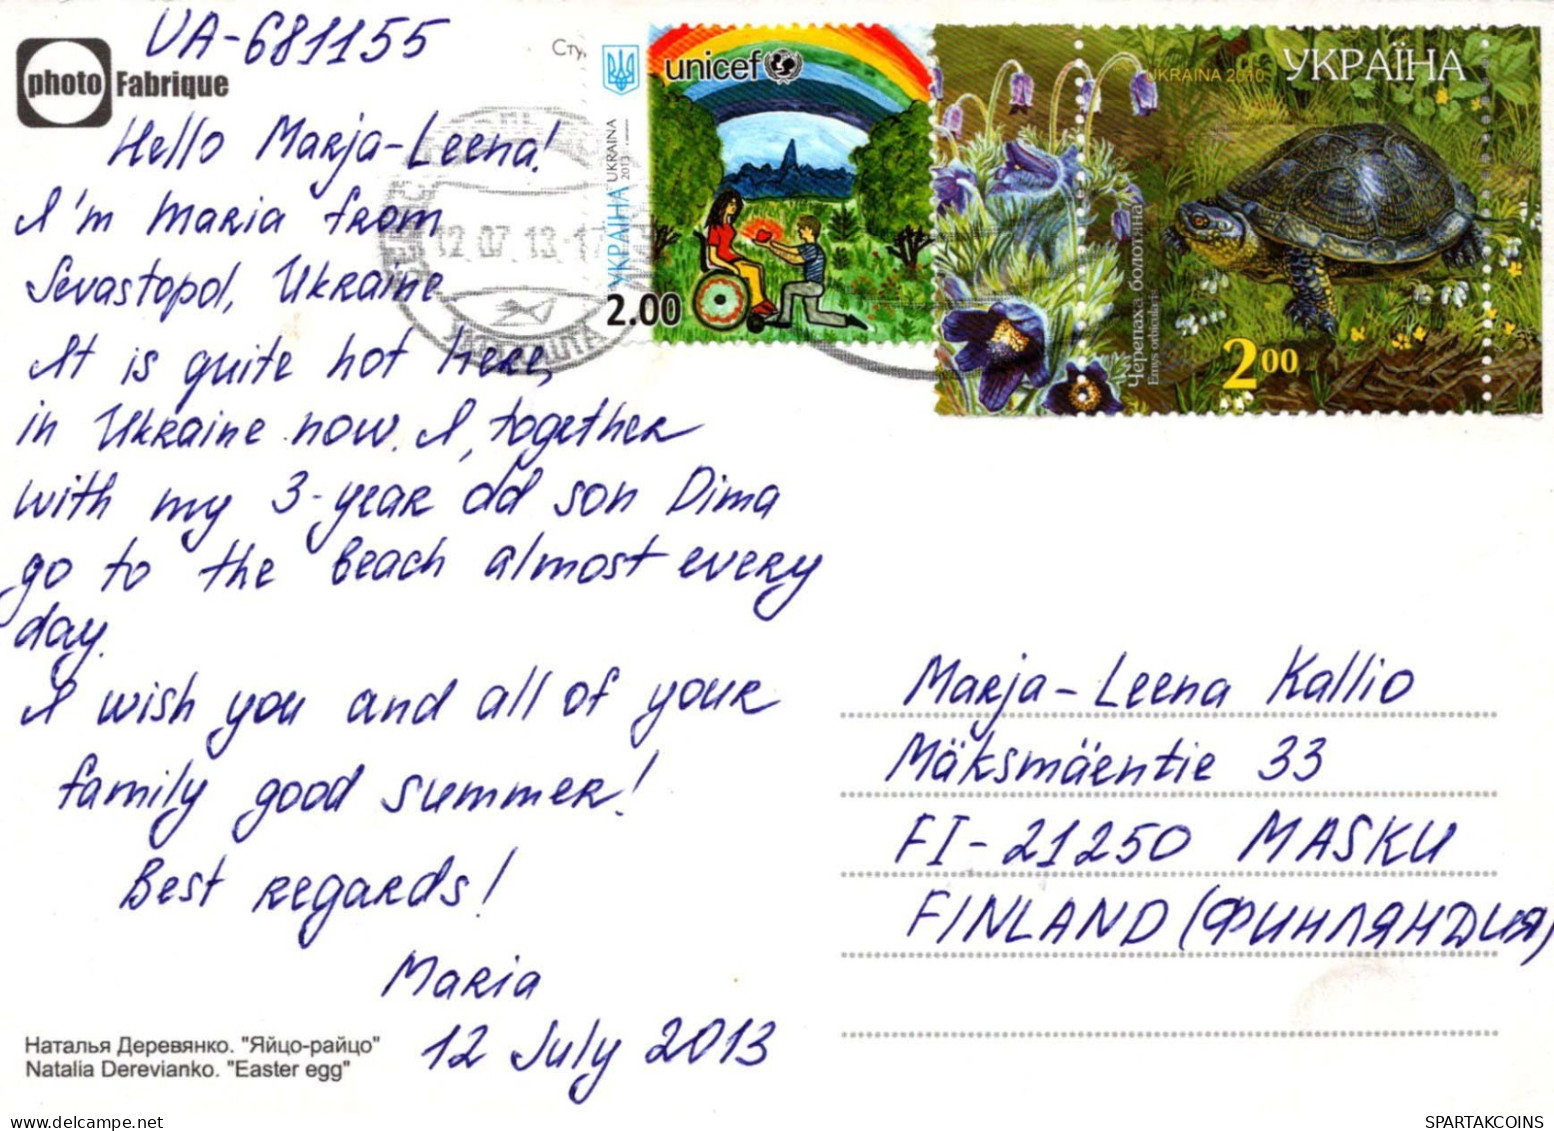 UA-681155
photo Fabrique
Hello Marja-Leena!
I'm Maria from
Sevastopol, Ukraine
It is quite hot here,
in Ukraine now. I, together
with my 3-year old son Dima
go to the beach almost every
day.
I wish you and all of your
family good summer!
Best regards!
Maria
12 July 2013
Наталья Деревянко. "Яйцо-райцо"
Natalia Derevianko. "Easter egg"
unicef
УКРАЇНА
UKRAINA
2013
2.00
12 07 13
UKRAINA 2010
УКРАЇНА
Черепаха болотяна
Emys orbicularis
2 00
Marja-Leena Kallio
Mäksmäentie 33
FI-21250 MASKU
FINLAND (ФИНЛЯНДИЯ)
SPARTAKCOINS.COM